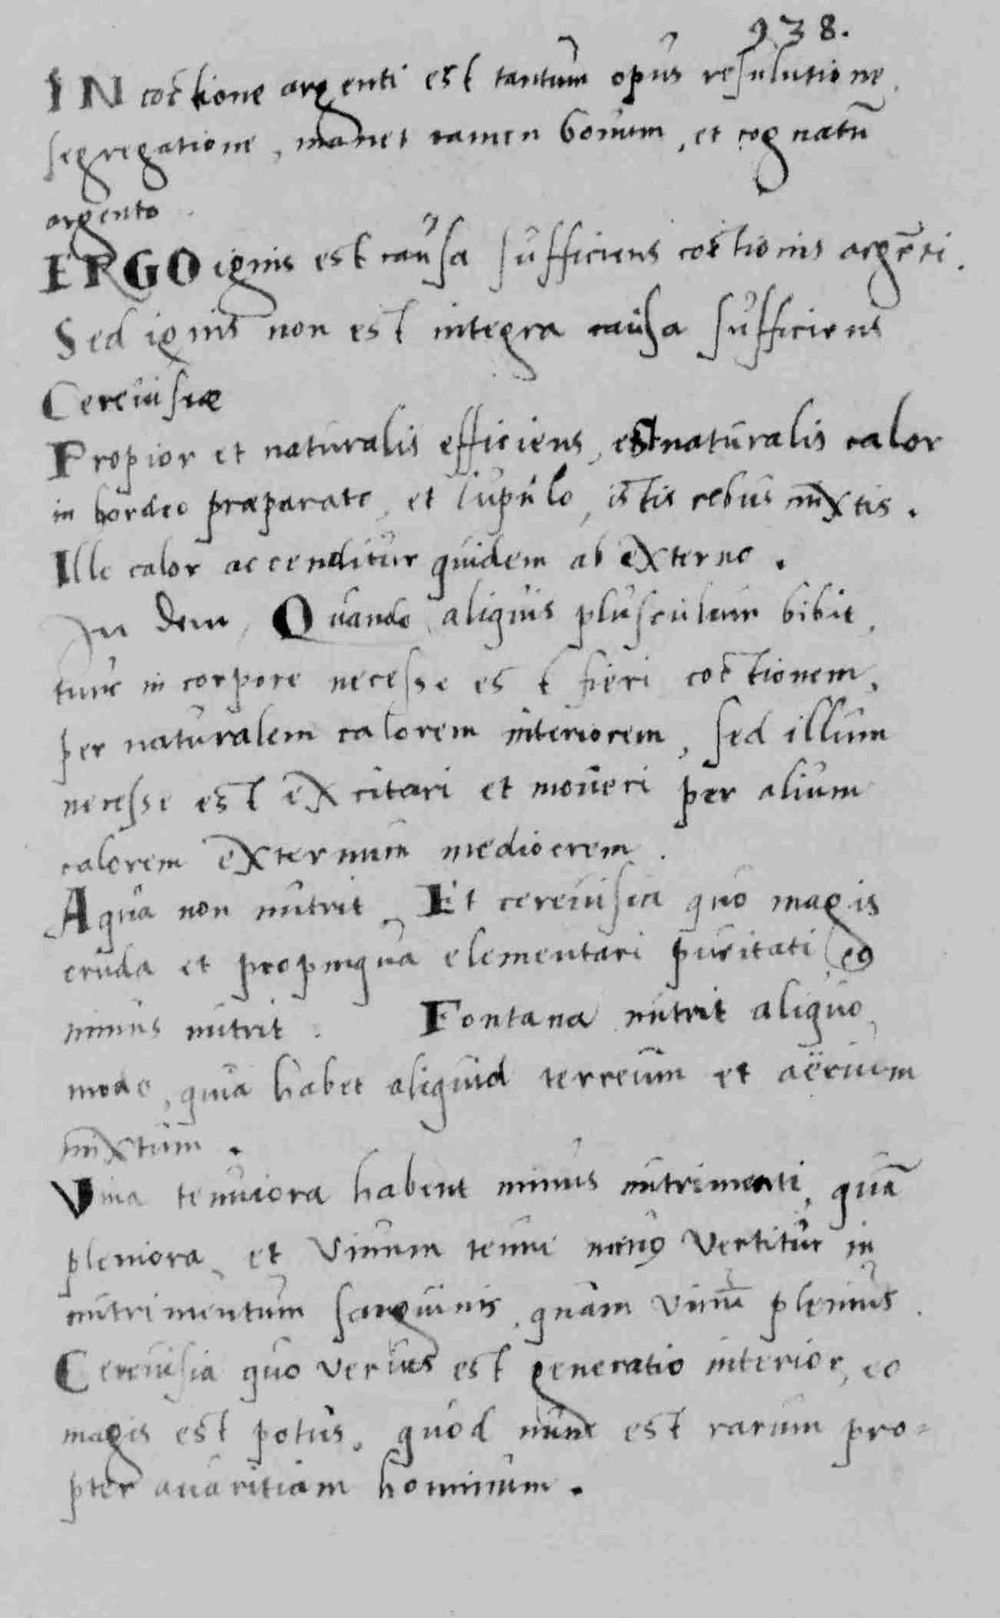 938.
IN coctione argenti est tantum opus resulutione
segregatione, manet tamen bonum, et cognatū
argento
ERGO ignis est causa sufficiens coctionis argēti.
Sed ignis non est integra causa sufficiens
Cereuisiæ
Propior et naturalis efficiens, est naturalis calor
in hordeo præparato, et lupulo, istis rebus mixtis.
Ille calor accenditur quidem ab externo.
In dem, Quando aliquis plusculum bibit,
tunc in corpore necesse est fieri coctionem,
per naturalem calorem interiorem, sed illum
necesse est excitari et moueri per alium
calorem externum mediocrem.
Aqua non nutrit, Et cereuisia quo magis
cruda et propinqua elementari puritati eo
minus nutrit. Fontana nutrit aliquo
modo, quia habet aliquid terreum et aërium
mixtum.
Vina tenuiora habent minus nutrimenti, quā
pleniora, et vinum tenue minus vertitur in
nutrimentum sanguinis, quam vinū plenius.
Cereuisia quo verius est generatio interior, eo
magis est potus, quod nunc est rarum pro=
pter auaritiam hominum.